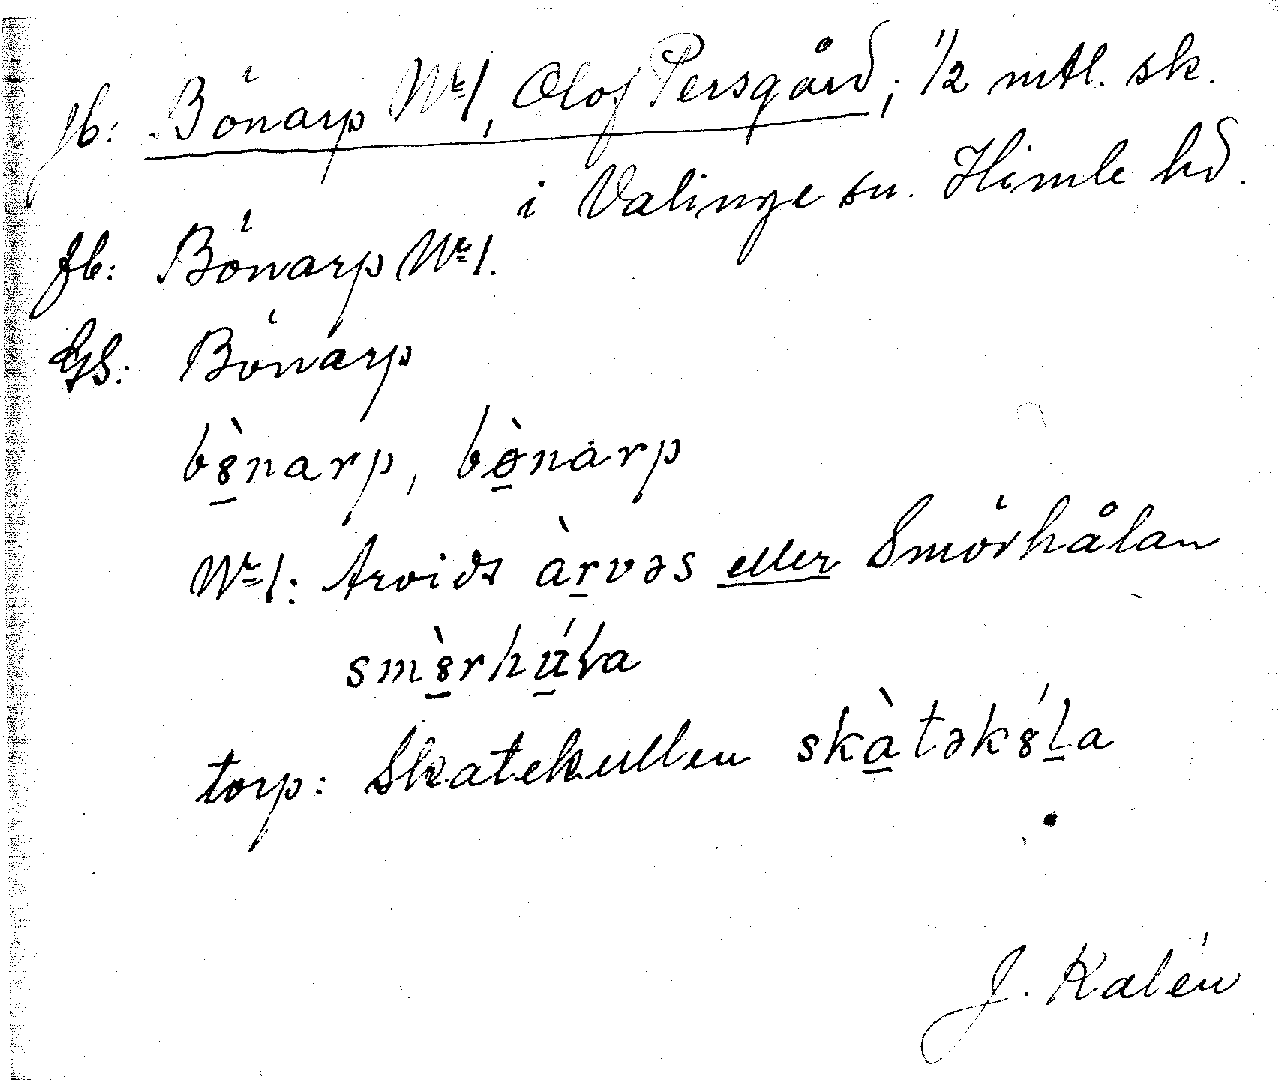 Jb: Bönarp № 1, Olof Persgård, 1/2 mtl. sk.
i Valinge sn. Himle hd.
fb: Bönarp № 1.
GS: Bönarp
b8̠̀narp, bø̠̀narp
№ 1: Arvids àr̠vəs eller Smörhålan
sm8̠̀rhú̠la
torp: Skatekullen skà̠təkʹ8l̠a
J. Kalén